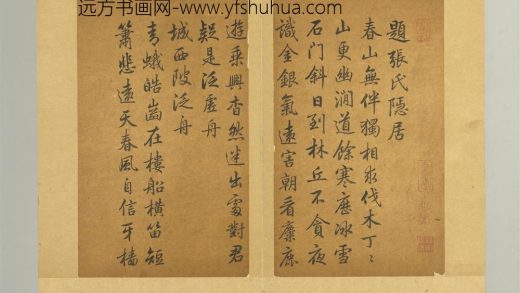 远方书画网-www.yfshuhua.com
題張氏隱居
春山無伴獨相求伐木丁〻
山更幽澗道餘寒歷冰雪
石门斜日到林丘不貪夜
識金銀氣遠害朝看麋鹿
遊乗興杳然迷出處對君
疑是泛虛舟
城西陂泛舟
青蛾皓齒在樓船橫笛短
簫悲遠天春風自信牙檣